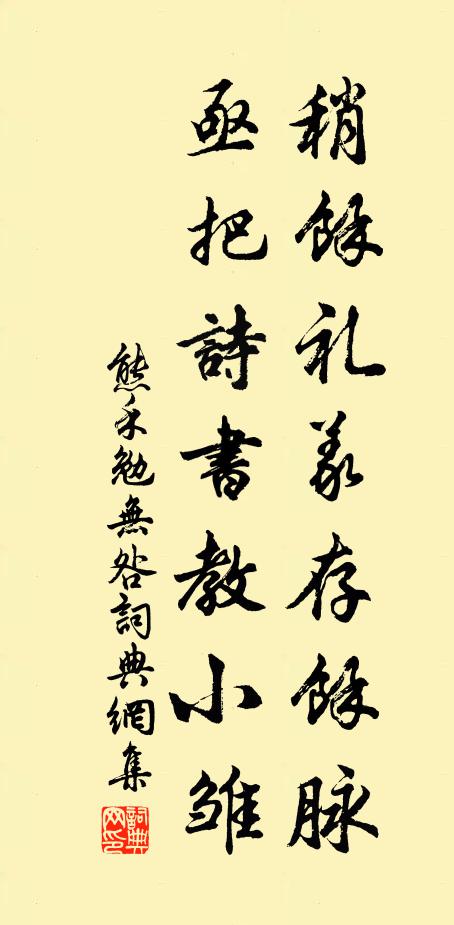 稍餘礼義存餘脉
亟把詩書教小雏
熊禾勉無咎詞典網集
詞典网印